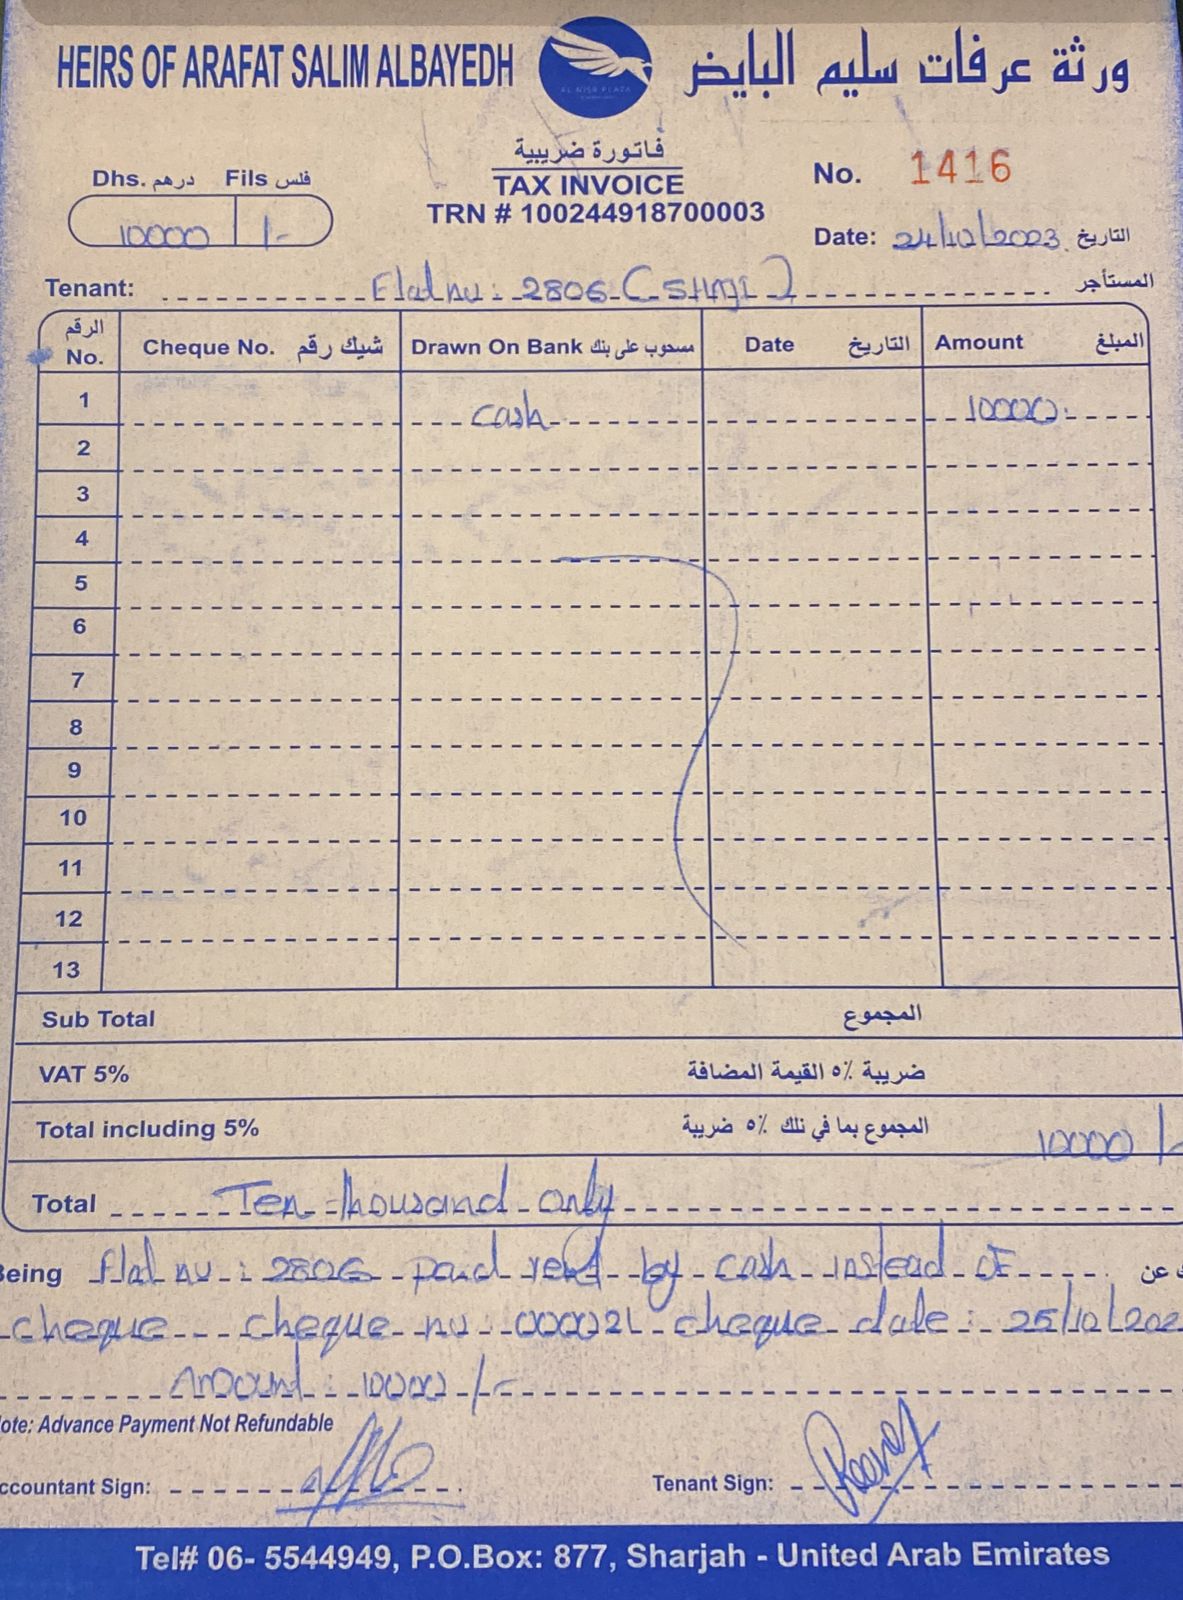 HEIRS OF ARAFAT SALIM ALBAYEDH
AL NISR PLAZA
ورثة عرفات سليم البايض
فاتورة ضريبية
TAX INVOICE
TRN # 100244918700003
Dhs. درهم Fils فلس
10000 /-
No. 1416
Date: 24/10/2023 التاريخ
Tenant: Flat nu: 2806 المستأجر
الرقم No. Cheque No. شيك رقم Drawn On Bank مسحوب على بنك Date التاريخ Amount المبلغ
1 cash 10000
2
3
4
5
6
7
8
9
10
11
12
13
Sub Total المجموع
VAT 5% ضريبة ٥٪ القيمة المضافة
Total including 5% المجموع بما في تلك ٥٪ ضريبة 10000/-
Total Ten thousand only
Being Flat nu: 2806 paid rent by cash instead of عن
cheque cheque nu: 000021 cheque date: 25/10/202
Amount: 10000/-
ote: Advance Payment Not Refundable
ccountant Sign: Tenant Sign:
Tel# 06- 5544949, P.O.Box: 877, Sharjah - United Arab Emirates